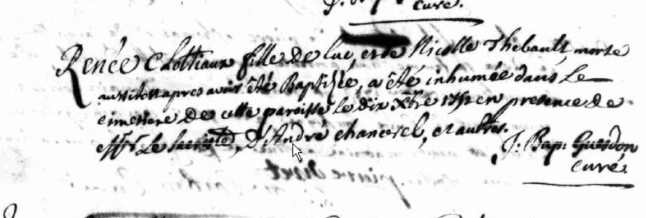 curé.
Renée Chottiaux fille de luc, et de Nicolle Thebault, morte
aussitost apres avoir été Baptisée, a été inhumée dans Le
cimetiere de cette paroisse le dix Xbre en presence de
Le sacriste, d'André chancerel, et autres.
J. Bap. Guerdon
curé.